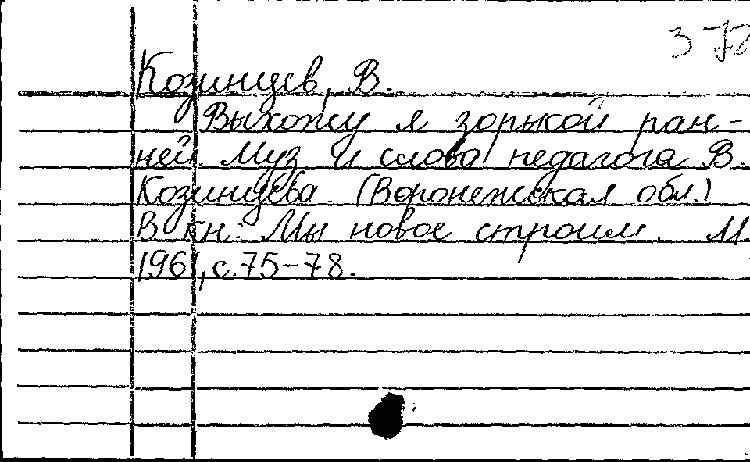 Козинцев, В.
Выхожу я зорькой ран-
ней. Муз. и слова педагога В.
Козинцева. (Воронежская обл.)
В кн.: Мы новое строим. М
1961, с.75-78.